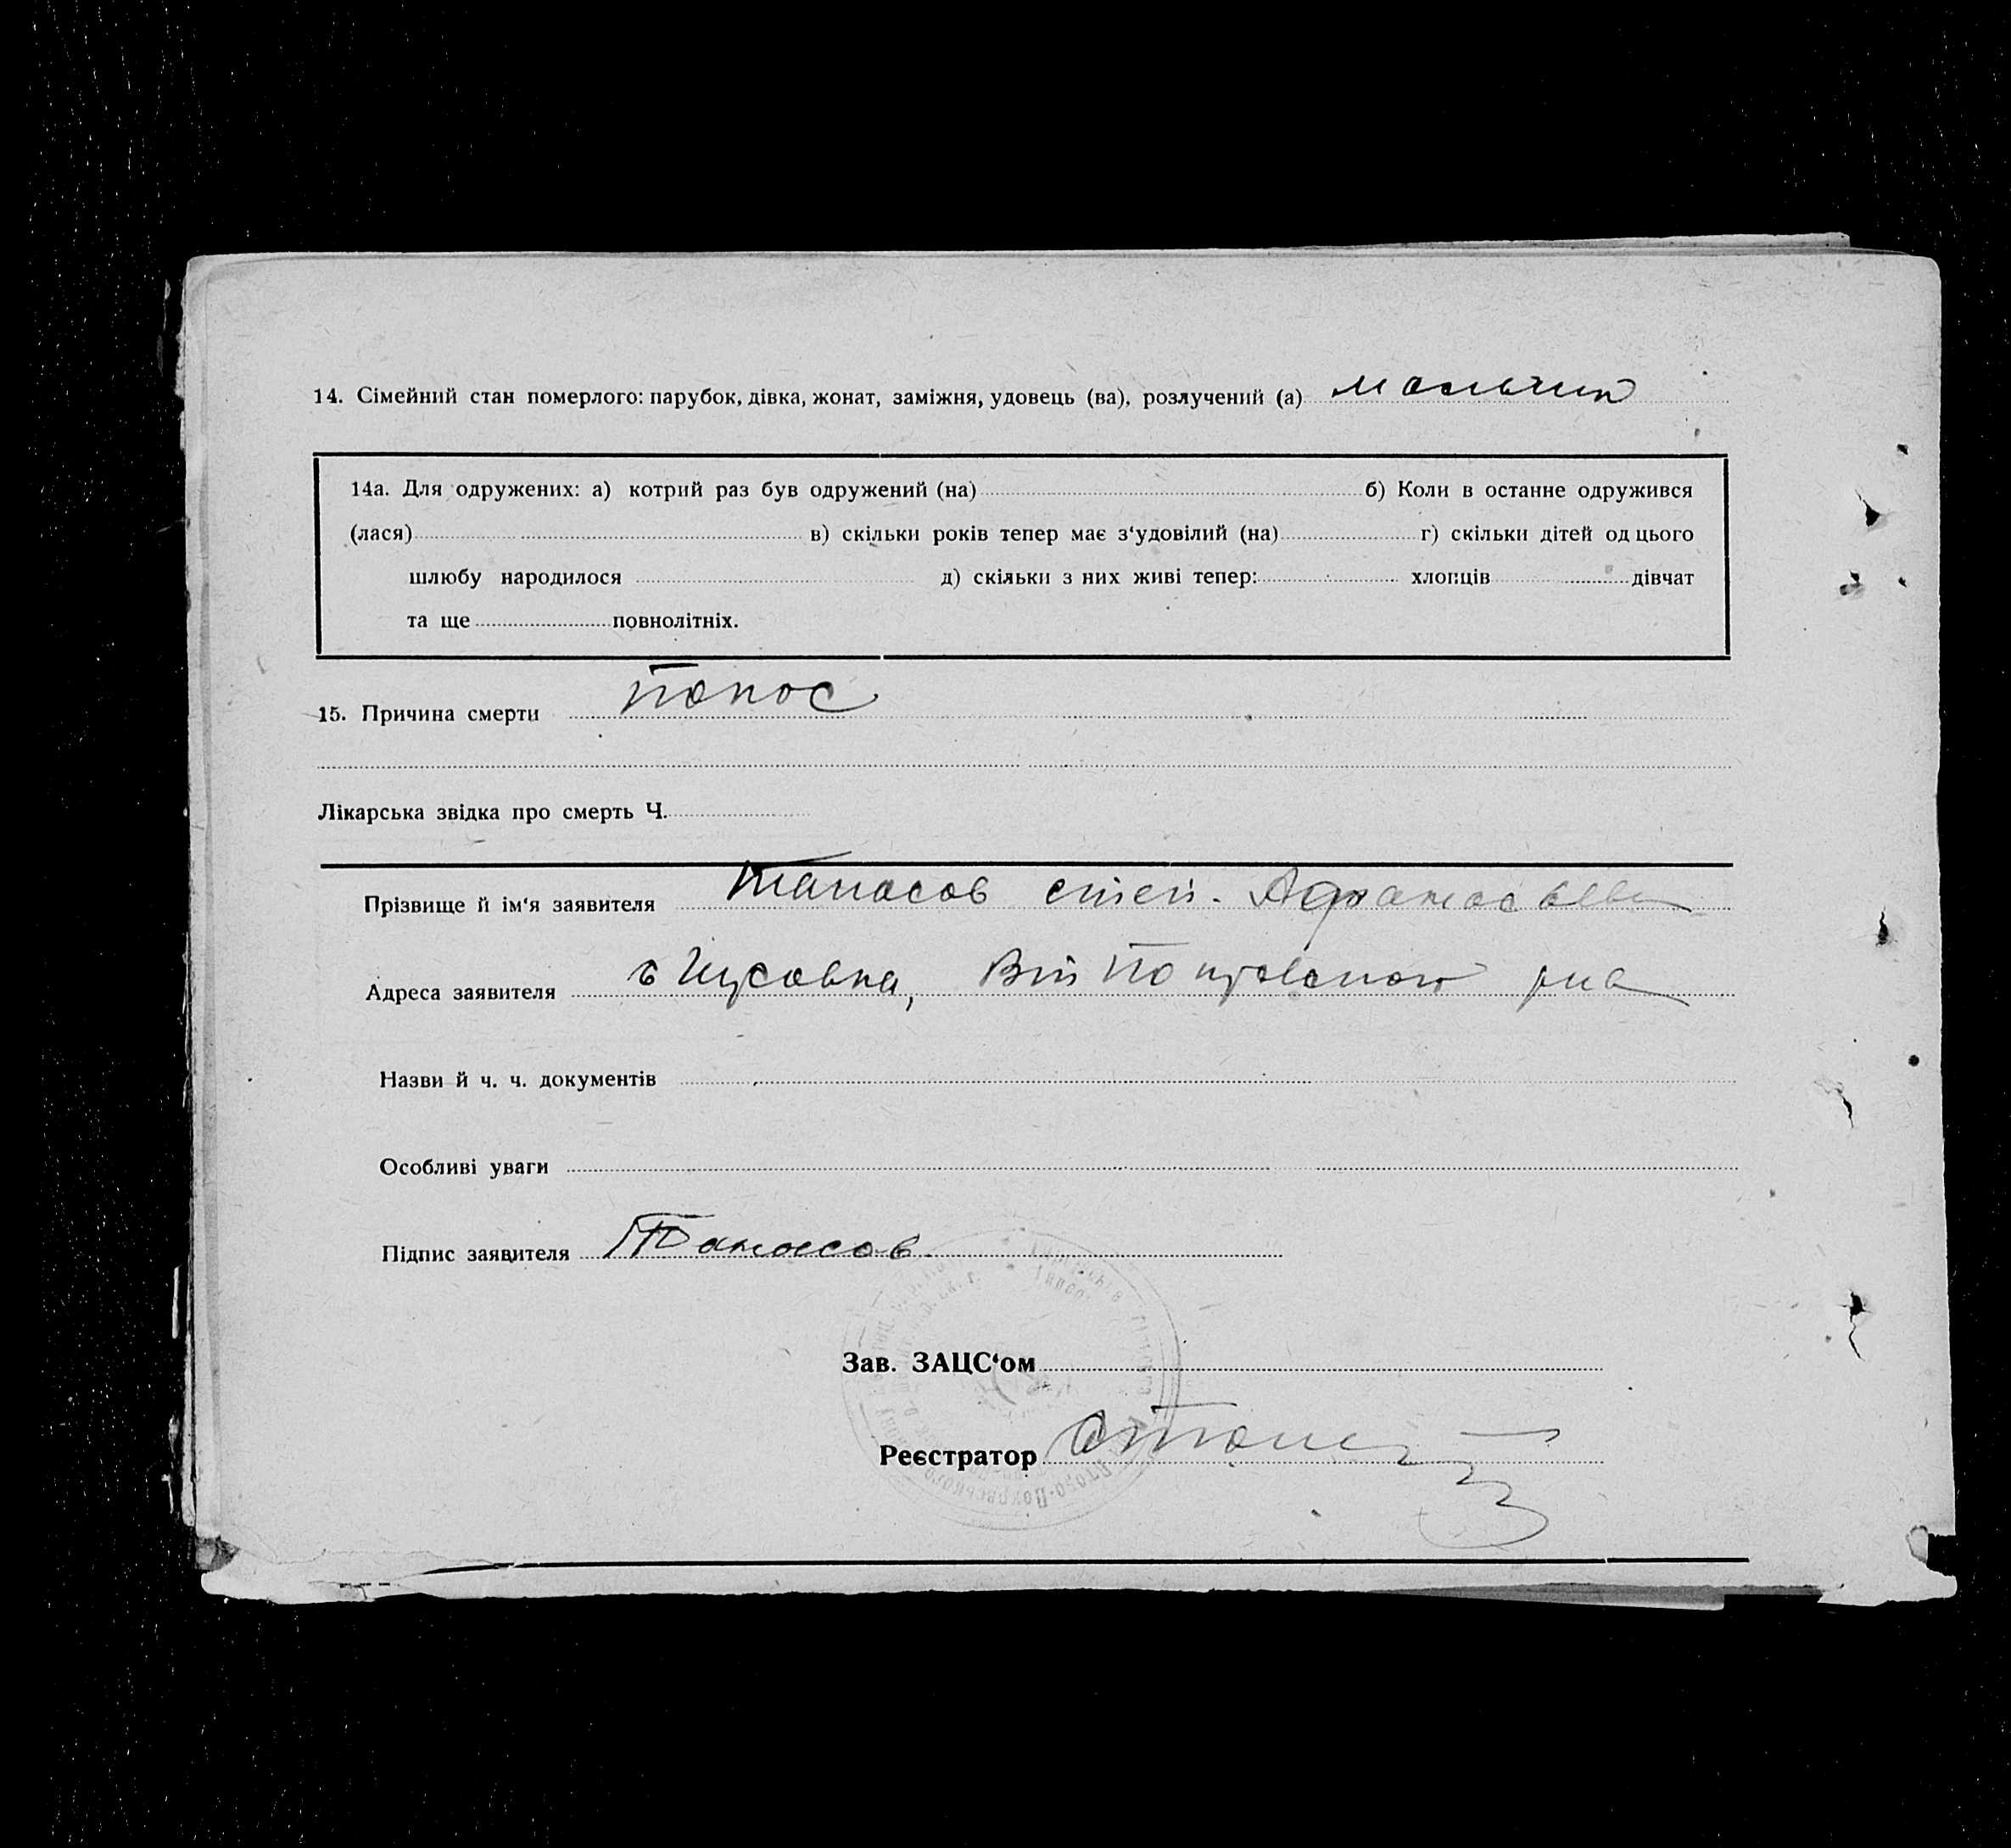 14. Сімейний стан померлого: парубок, дівка, жонат, заміжня, удовець (ва), розлучений (а) мальчик
14а. Для одружених: а) котрий раз був одружений (на) б) Коли в останне одружився
(лася) в) скільки років тепер має з‘удовілий (на) г) скільки дітей од цього
шлюбу народилося д) скільки з них живі тепер: хлопців дівчат
та ще повнолітніх.
15. Причина смерти понос
Лікарська звідка про смерть Ч.
Прізвище й ім‘я заявителя
Адреса заявителя
Назви й ч. ч. документів
Особливі уваги
Підпис заявителя
Зав. ЗАЦС‘ом
Реєстратор